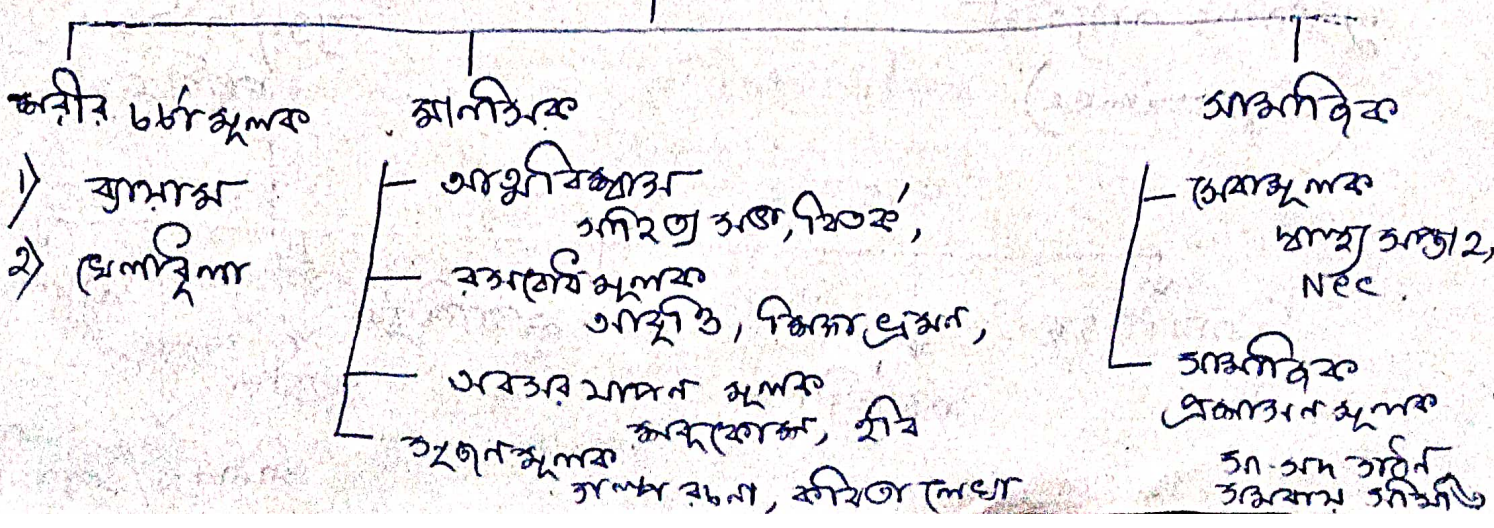 শরীর চর্চা মূলক
১) ব্যায়াম
২) খেলাধূলা
মানসিক
আত্মবিশ্বাস
সাহিত্য সভা, বিতর্ক,
রসবোধ মূলক
আবৃত্তি, শিক্ষা ভ্রমন,
অবসর যাপন মূলক
শব্দকোশ, ছবি
সৃজন মূলক
গল্প রচনা, কবিতা লেখা
সামাজিক
সেবামূলক
স্বাস্থ্য সপ্তাহ,
Ncc
সামাজিক
প্রশাসন মূলক
গঠন,
সমবায় সমিতি